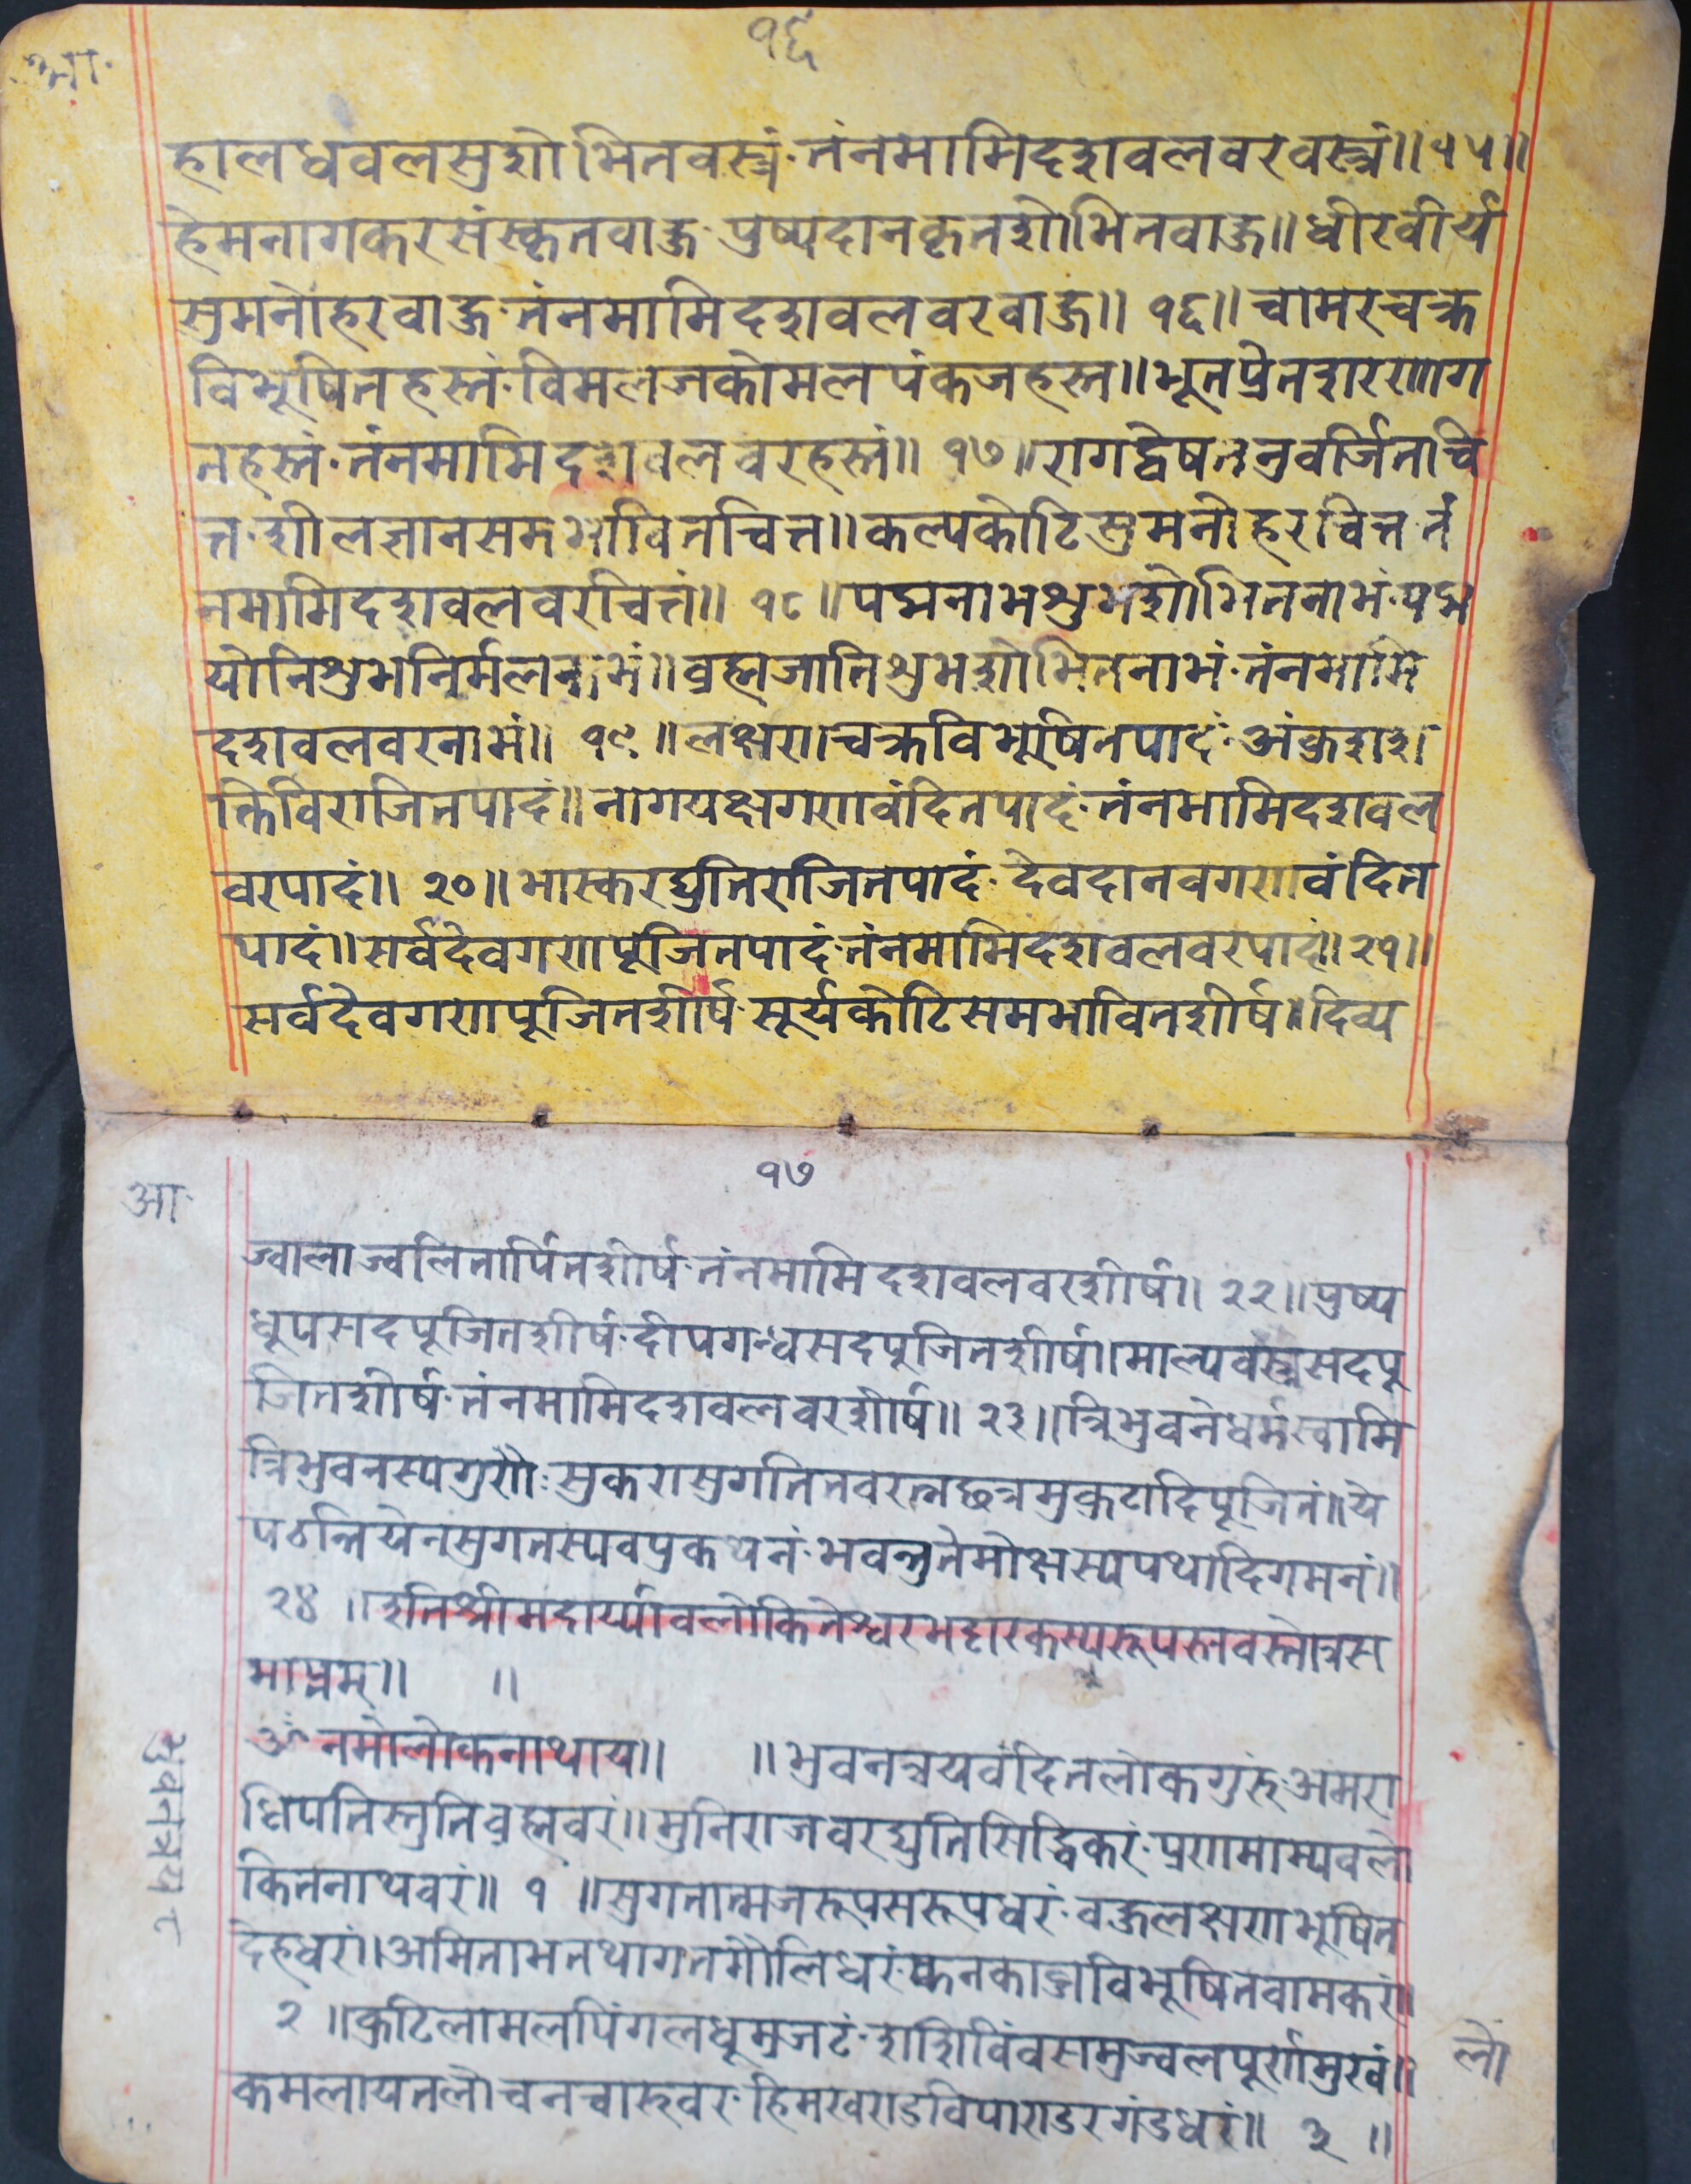 १६
आ·
हालधवलसुशोभितवस्त्रं·तंनमामिदशवलवरवस्त्रं॥१५॥
हेमनागकरसंस्कृतवाहु·पुष्पदानकृतशोभितवाहु॥धीरवीर्य
सुमनोहरवाहु·तंनमामिदशवलवरवाहु॥१६॥चामरचक्र
विभूषितहस्तं·विमलजकोमलपंकजहस्त॥भूतप्रेतशरणाग
तहस्तं·तंनमामिदशवलवरहस्तं॥१७॥रागद्वेषतनुवर्जितचि
त्त·शीलज्ञानसमभावितचित्त॥कल्पकोटिसुमनोहरचित्त·तं
नमामिदशवलवरचित्तं॥१८॥पद्मनाभशुभशोभितनाभं·पद्म
योनिशुभनिर्मलनाभं॥व्रह्मजातिशुभशोभितनाभं·तंनमामि
दशवलवरनाभं॥१९॥लक्षणचक्रविभूषितपादं·अंकुशश
क्तिविराजितपादं॥नागयक्षगणवंदितपादं·तंनमामिदशवल
वरपादं॥२०॥भास्करद्युतिराजितपादं·देवदानवगणवंदित
पादं॥सर्वदेवगणपूजितपादं·तंनमामिदशवलवरपादं॥२१॥
सर्वदेवगणपूजितशीर्ष·सूर्यकोटिसमभावितशीर्ष॥दिव्य
१७
आ·
ज्वालाज्वलितार्पितशीर्ष·तंनमामिदशवलवरशीर्ष॥२२॥पुष्प
धुपसदपूजितशीर्ष·दीपगन्धसदपुजितशीर्ष॥माल्यवस्त्रसदपू
जितशीर्ष·तंनमामिदशवलवरशीर्ष॥२३॥त्रिभुवनेधर्मस्वामि
त्रिभुवनस्यगुरौः·सुकरासुगतितवरत्नछत्रमुकुटादिपूजितं॥ये
पठन्तियेनसुगतस्यवप्रकथेनं·भवन्तुतेमोक्षस्यपथादिगमनं॥
२४॥इतिश्रीमदार्य्यावलोकितेश्वरभट्टारकस्यरूपस्तवस्तोत्रस
माप्तम्॥ ॥
ॐनमोलोकनाथाय॥ ॥भुवनत्रयवंदितलोकगुरु·अमरा
धिपतिस्तुतिव्रह्मवरं॥मुनिराजवरद्युतिसिद्धिकरं·प्रणमाम्यवलो
कितनाथवरं॥१॥सुगतात्मजरूपसरूपधरं·वहुलक्षणभूषित
देहधरां॥अमिताभतथागतमौलिधरं·कनकाब्जविभूषितवामकरं॥
२॥कुटिलामलपिंगलधूम्रजटं·शशिविंवसमुज्वलपूर्णमुखं॥
कमलायतलोचनचारुवर·हिमखण्डविपाण्डरगंडधरं॥३॥
भुवनत्रय८
लो